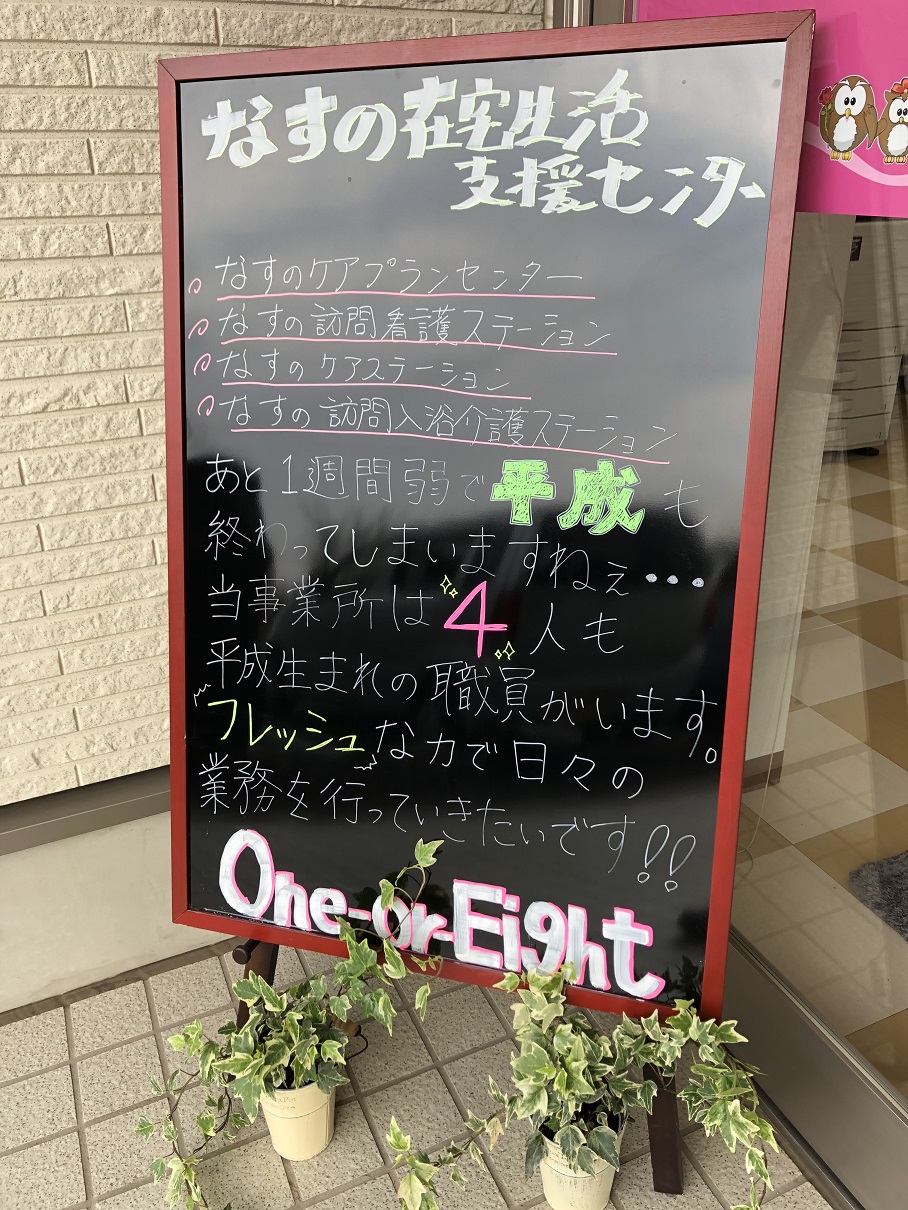 なすの在宅生活
支援センター
なすのケアプランセンター
なすの訪問看護ステーション
なすのケアステーション
なすの訪問入浴介護ステーション
あと1週間弱で平成も
終わってしまいますねぇ…
当事業所は4人も
平成生まれの職員がいます。
フレッシュな力で日々の
業務を行っていきたいです!!
One-or-Eight